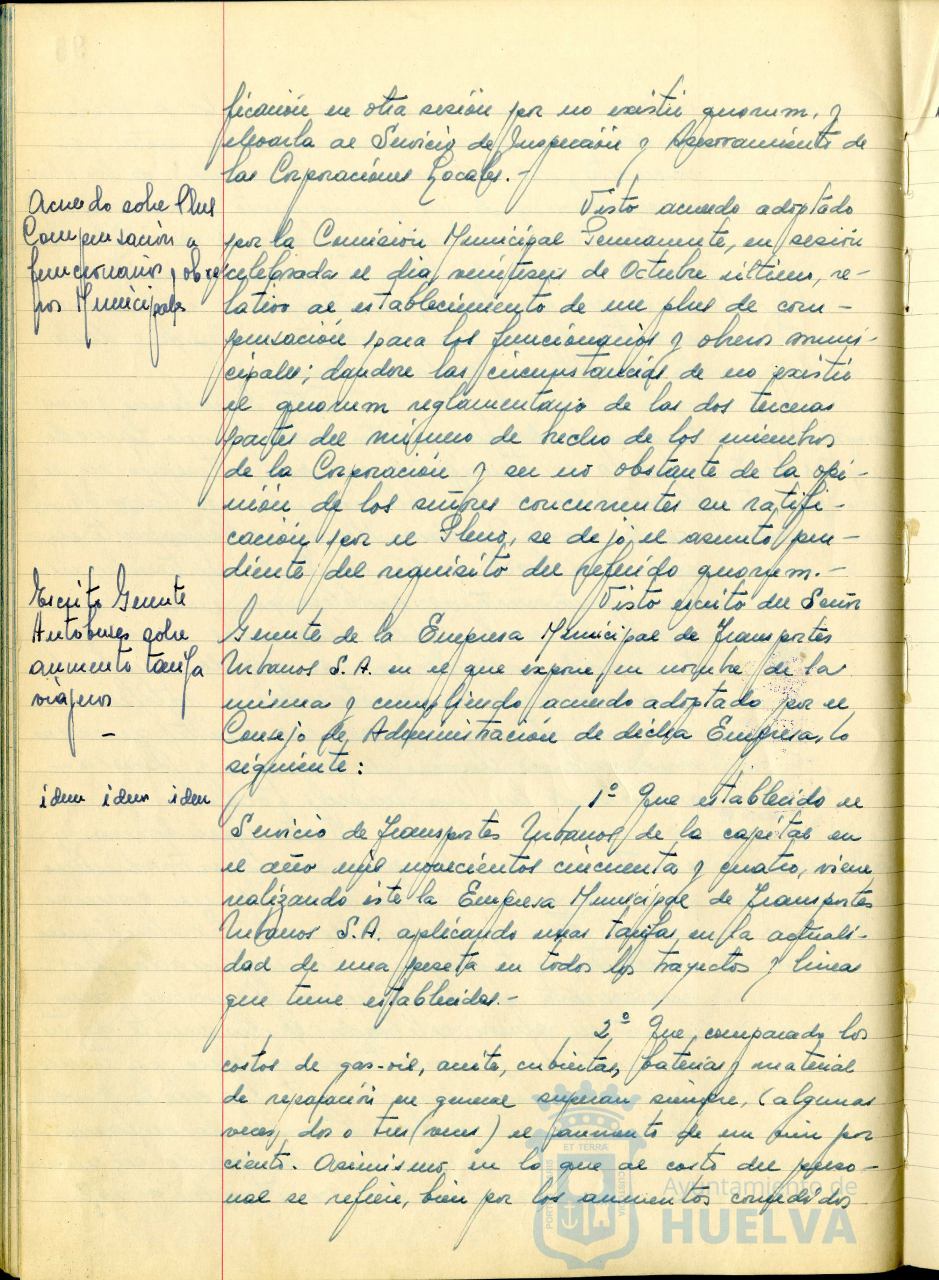 ficación en otra sesión por no existir quorum, y
elevarla al Servicio de Inspección y Asesoramiento de
las Corporaciones Locales.-
Acuerdo sobre Plus
Compensación a
funcionarios y obre
ros Municipales
Visto acuerdo adoptado
por la Comisión Municipal Permanente, en sesión
celebrada el dia veintiseis de Octubre último, re-
lativo al establecimiento de un plus de com-
pensación para los funcionarios y obreros muni-
cipales; dandose las circunstancias de no existir
el quorum reglamentario de las dos terceras
partes del número de hecho de los miembros
de la Corporación y ser no obstante de la opi-
nión de los señores concurrentes su ratifi-
cación por el Pleno, se dejó el asunto pen-
diente del requisito del referido quorum.-
Escrito Gerente
Autobuses sobre
aumento tarifa
viajeros
-
Visto escrito del Señor
Gerente de la Empresa Municipal de Transportes
Urbanos S.A. en el que expone, en nombre de la
misma y cumpliendo acuerdo adoptado por el
Consejo de Administración de dicha Empresa, lo
siguiente:
idem idem idem
1º Que establecido el
Servicio de Transportes Urbanos de la capital en
el año mil novecientos cincuenta y cuatro, viene
realizando éste la Empresa Municipal de Transportes
Urbanos S.A. aplicando unas tarifas en la actuali-
dad de una peseta en todos los trayectos y lineas
que tiene establecidas.-
2º Que comparado los
costos de gas-oil, aceite, cubiertas, baterias y material
de reparación en general superan siempre, (algunas
veces, dos o tres veces) el aumento de un cien por
ciento. Asimismo, en lo que al costo del perso-
nal se refiere, bien por los aumentos concedidos
ET TERRA
Ayuntamiento de
HUELVA